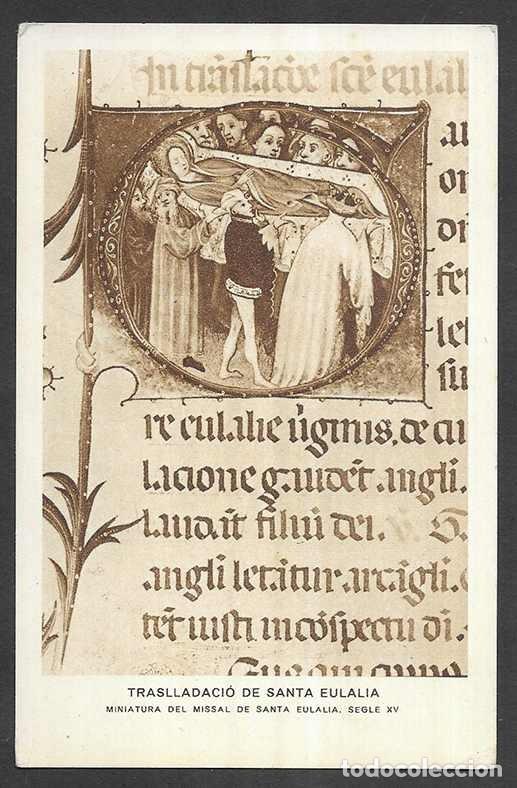 In translacioe sce eulal
au
on
di
fe
let
su
re eulalie uginis. de cu
lacione gaudet angli.
laudat filiu dei. S.
angli letatur arcagli. c
tet iusti in cospectu di.
TRASLLADACIÓ DE SANTA EULALIA
MINIATURA DEL MISSAL DE SANTA EULALIA. SEGLE XV
todocoleccion.net